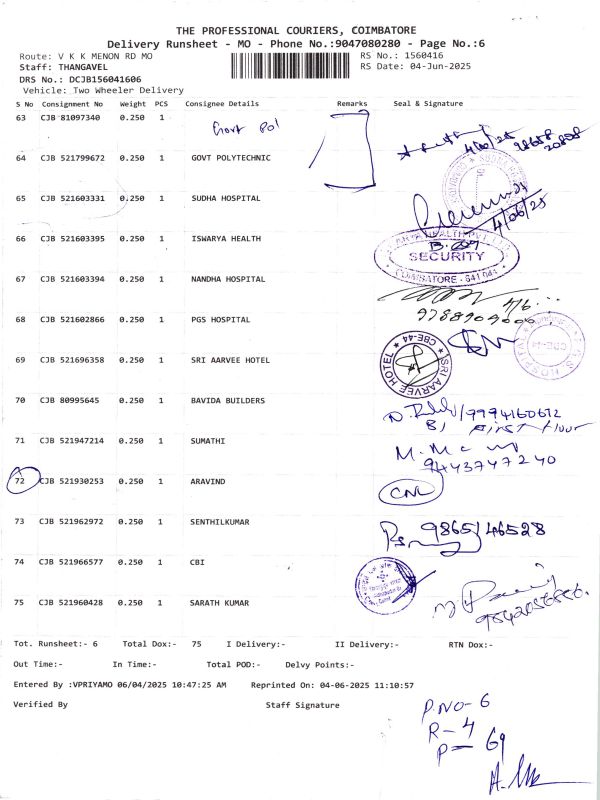 THE PROFESSIONAL COURIERS, COIMBATORE
Delivery Runsheet - MO - Phone No.:9047080280 - Page No.:6
Route: V K K MENON RD MO RS No.: 1560416
Staff: THANGAVEL RS Date: 04-Jun-2025
DRS No.: DCJB156041606
Vehicle: Two Wheeler Delivery
S No Consignment No Weight PCS Consignee Details Remarks Seal & Signature
63 CJB 81097340 0.250 1 Govt Pol
64 CJB 521799672 0.250 1 GOVT POLYTECHNIC
65 CJB 521603331 0.250 1 SUDHA HOSPITAL
4/06/25
66 CJB 521603395 0.250 1 ISWARYA HEALTH
SECURITY
COIMBATORE - 641 041
67 CJB 521603394 0.250 1 NANDHA HOSPITAL
68 CJB 521602866 0.250 1 PGS HOSPITAL
CBE-44
69 CJB 521696358 0.250 1 SRI AARVEE HOTEL
SRI AARVEE HOTEL CBE-44
70 CJB 80995645 0.250 1 BAVIDA BUILDERS 7994160612
First Floor
71 CJB 521947214 0.250 1 SUMATHI
9443747240
72 CJB 521930253 0.250 1 ARAVIND CNL
73 CJB 521962972 0.250 1 SENTHILKUMAR 9865146528
74 CJB 521966577 0.250 1 CBI
75 CJB 521960428 0.250 1 SARATH KUMAR
Tot. Runsheet:- 6 Total Dox:- 75 I Delivery:- II Delivery:- RTN Dox:-
Out Time:- In Time:- Total POD:- Delvy Points:-
Entered By :VPRIYAMO 06/04/2025 10:47:25 AM Reprinted On: 04-06-2025 11:10:57
Verified By Staff Signature
P.NO- 6
R- 4
P- 69